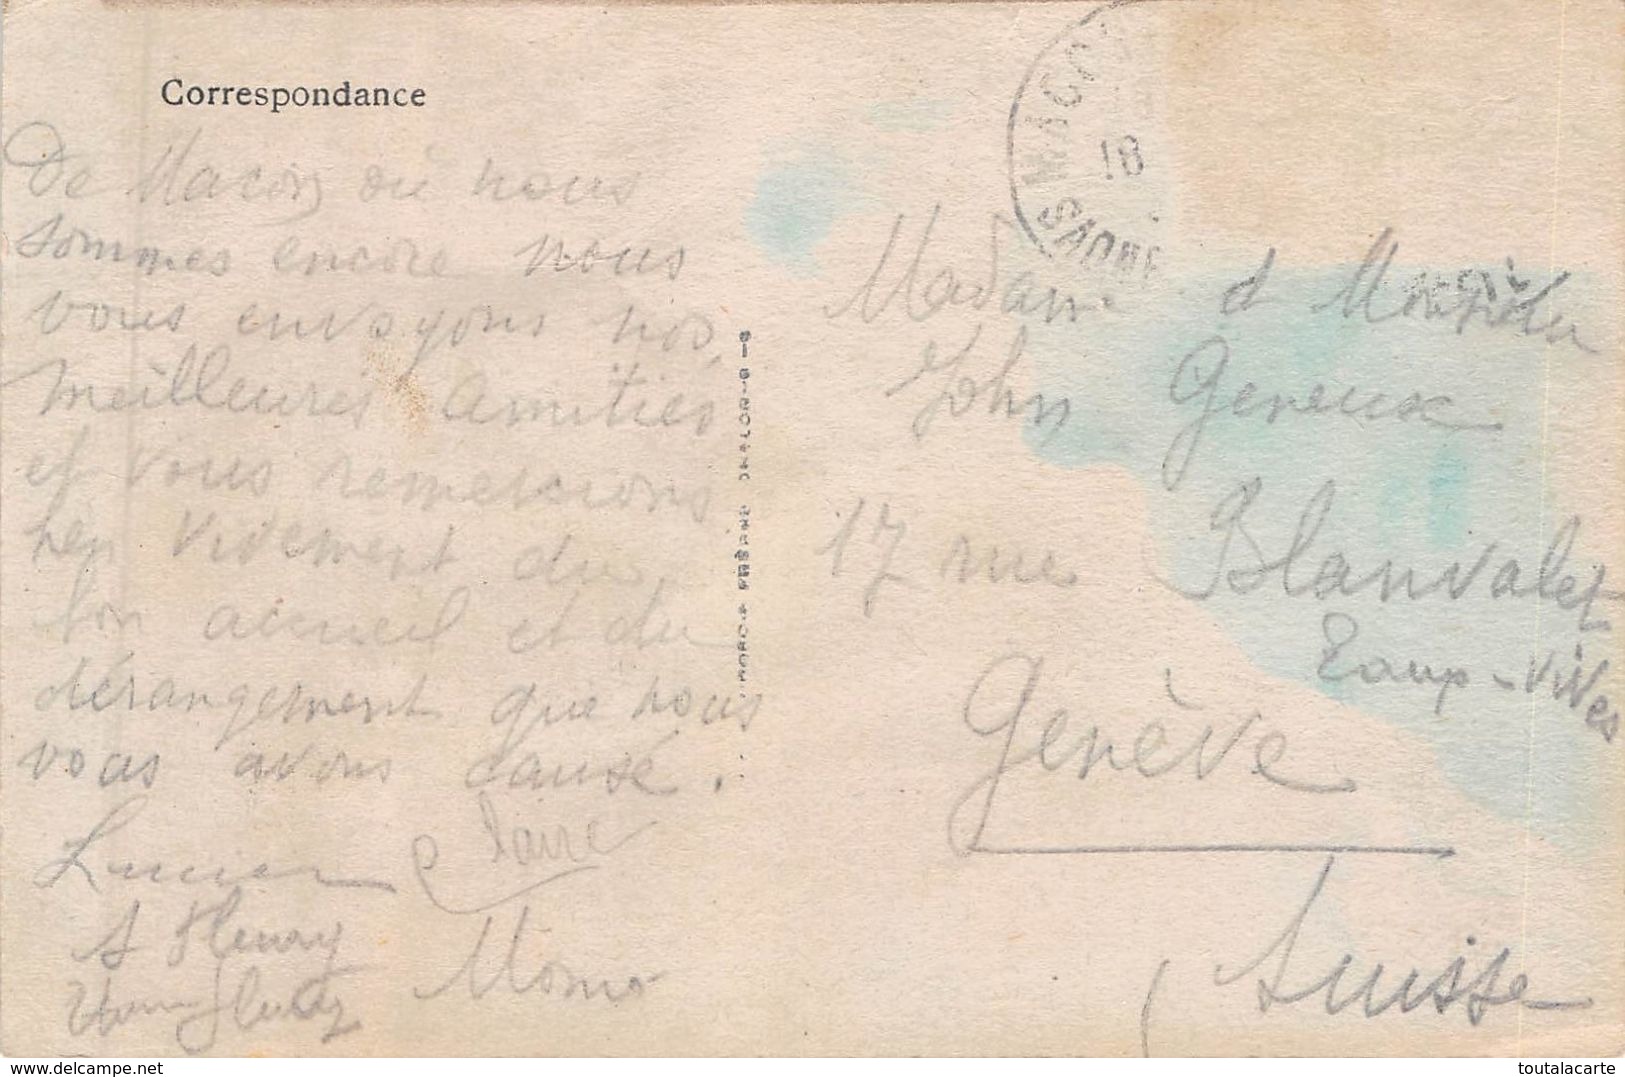 Correspondance
De Macon où nous
sommes encore nous
vous envoyons nos
meilleures amitiés
et vous remercions
bien vivement du
bon accueil et du
dérangement que nous
vous avons causé.
Lucien Claire
A Fleury
Momo
MACON
18
SAONE
Madame d Monsieur
John Geneux
17 rue Blanvalet
Eaup-vives
Genève
Suisse
toutalacarte